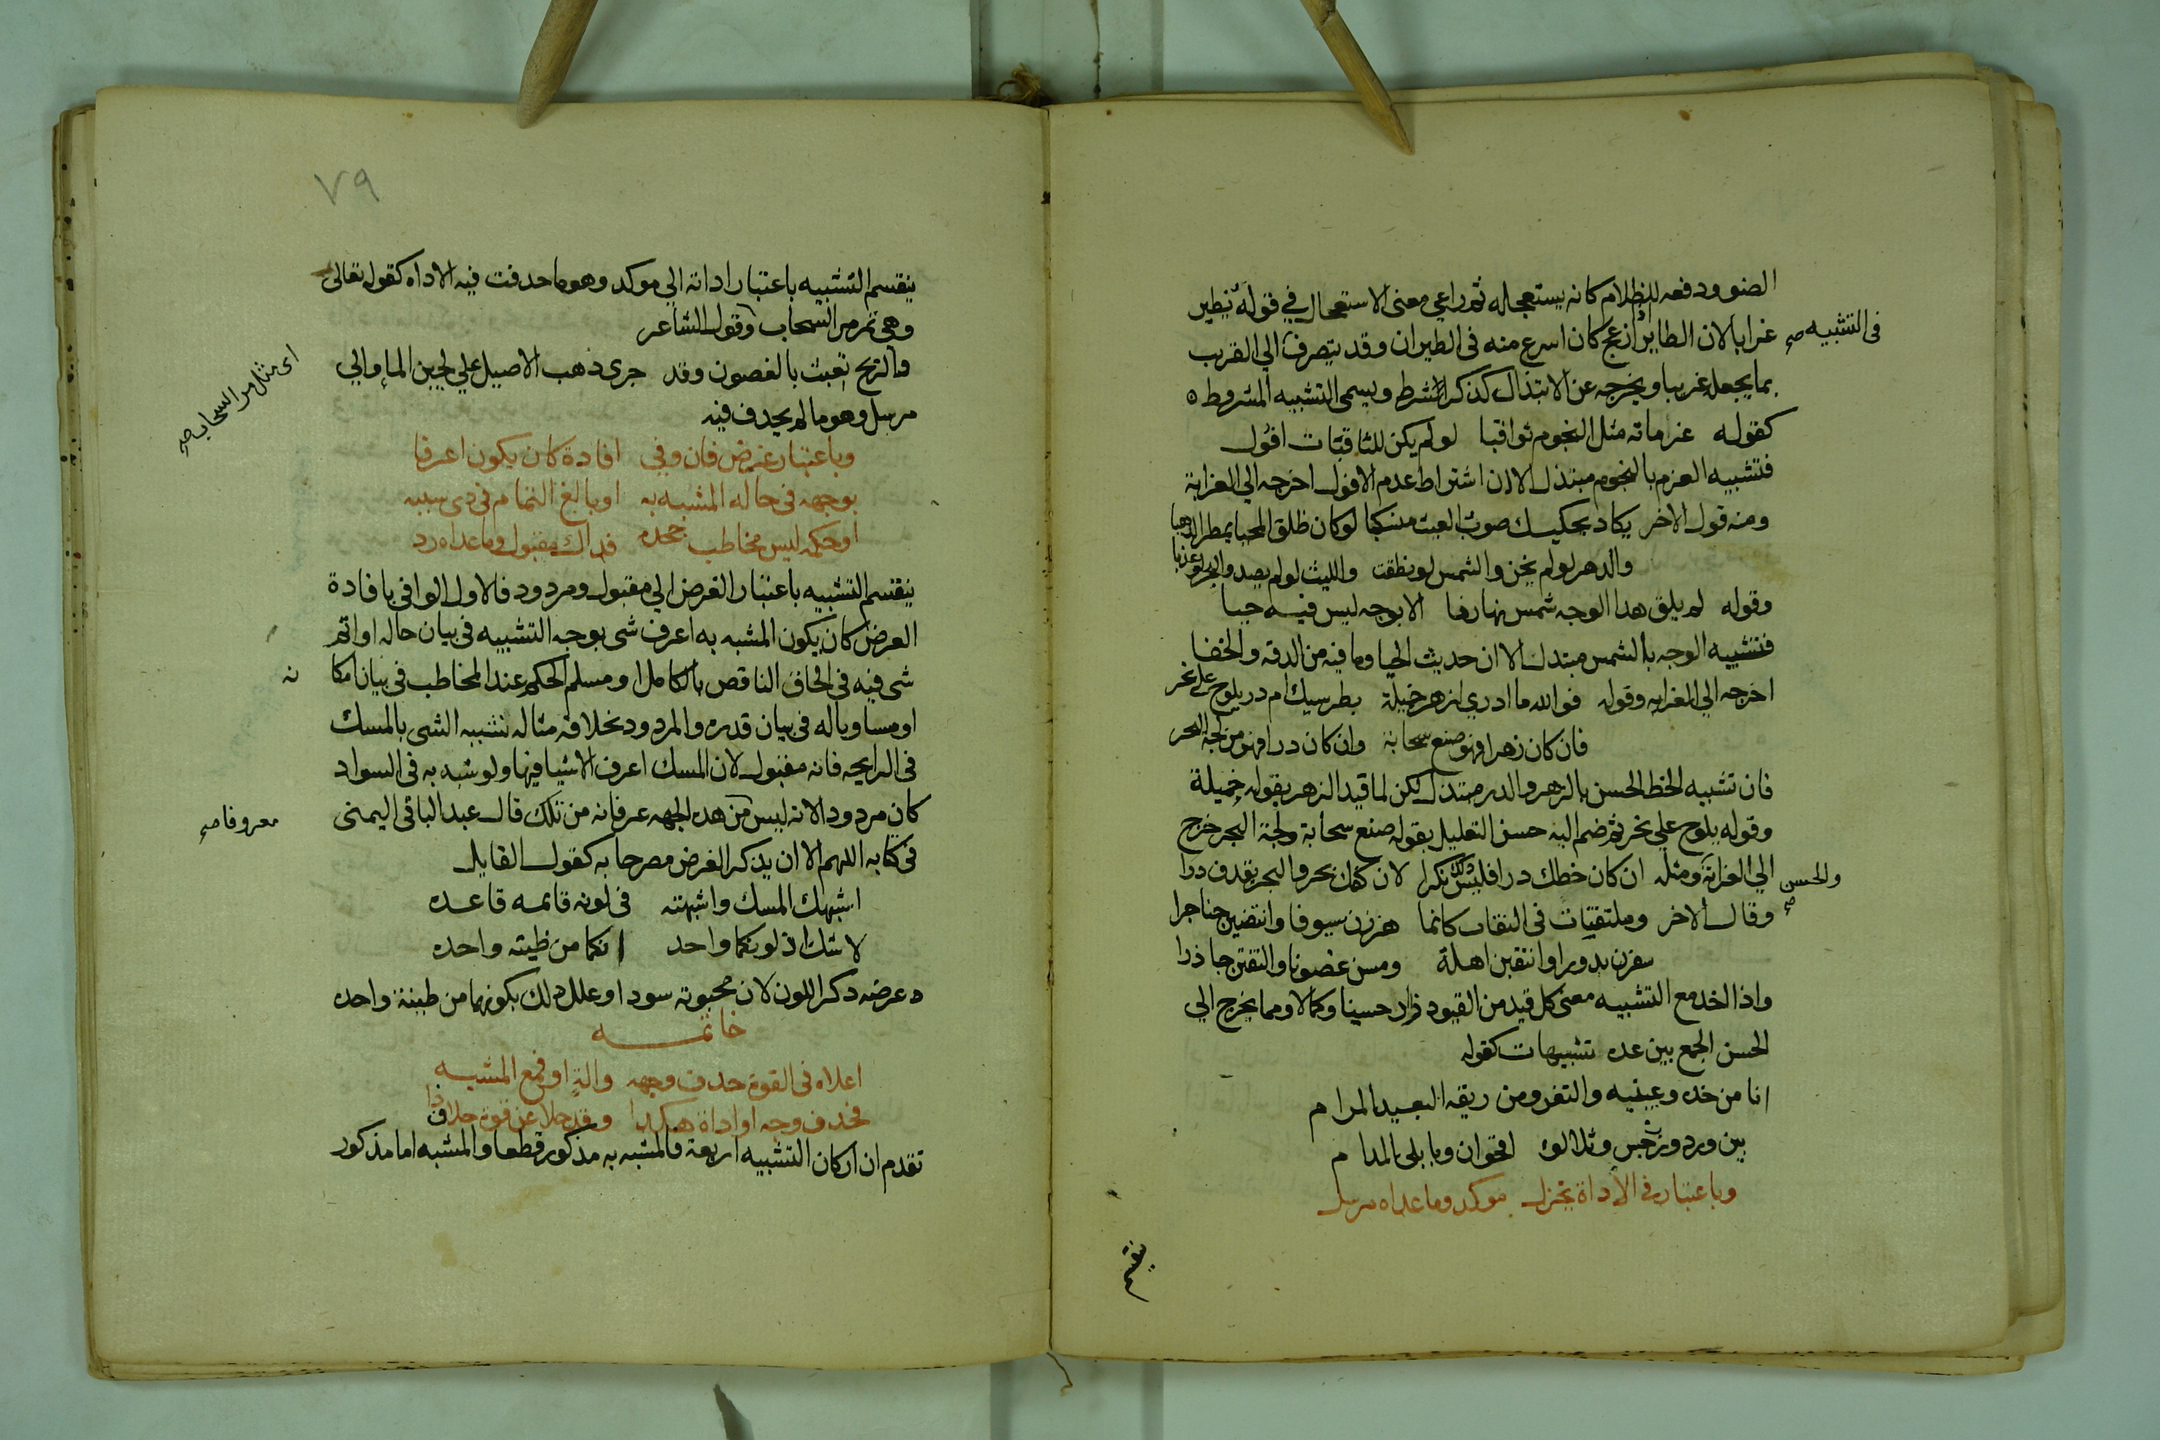 الضوو ودفعه للظلام كانه يستعجله ثم راعي معنى الاستعجال في قوله نطير
غرابا لان الطاير اذا ازعج كان اسرع منه فى الطيران وقد يتصرف الي القريب
فى التشبيه صح
بما يجعله غريبا ويخرجه عن الابتذال كذكر الشرط ويسمى التشبيه المشروط ه
كقوله عزماته مثل النجوم ثواقبا لو لم يكن للثاقبات افول
فتشبيه العزم بالنجوم مبتذل الا ان اشتراط عدم الافول اخرجه الي الغرابة
ومنه قول الاخر يكاد يحكيك صوب الغيث منسكبا لو كان طلق المحيا يمطر الذهبا
والدهر لو لم يخن والشمس لو نطقت والليث لو لم يصد والبحر لو عذبا
وقوله لم يلق هذا الوجه شمس نهارنا الا بوجه ليس فيه حيا
فتشبيه الوجه بالشمس مبتدل الا ان حديث الحيا وما فيه من الدقه والخفا
اخرجه الي الغرابه وقوله فوالله ما ادري ازهر خميلة بطرسك ام در يلوح على نحر
فان كان زهرا فهو صنع سحابة وان كان درا فهو من لجة البحر
فان تشبيه الخط الحسن بالزهر والدر مبتذل لكن لما قيد الزهر بقوله خميلة
وقوله يلوح علي نحر ثم ضم اليه حسن التعليل بقوله صنع سحابة ولجة البحر خرج
الي الغرابة ومثله ان كان خطك درا فليس ذلك نكرا لان كفك بحر والبحر يقدف درا
والحسن صح
وقال الاخر وملتقيات فى النقاب كانما هززن سيوفا وانتضين خناجرا
سفرن بدورا وانتقبن اهلة ومسن غصونا والتفتن جاذرا
واذا اخد مع التشبيه معنى كل قيد من القيود زاد حسينا وكمالا ومما يخرج الي
الحسن الجمع بين عده تشبيهات كقوله
انا من خده وعينيه والثغر ومن ريقه البعيد المرام
بين ورد ونرجس وتلالو اقحوان وبابلى المدام
وباعتبار فى الاداة يختزل موكد وما عداه مرسل
ينقسم
٧٩
ينقسم التشبيه باعتبار اداته الي موكد وهو ما حدفت فيه الاداه كقوله تعالى
وهى تمر مر السحاب وقول الشاعر
اى مثل مر السحاب صح
والريح تعبث بالغصون وقد جرى ذهب الاصيل علي لجين الما والي
مرسل وهو ما لم يحدف فيه
وباعتبار غرض فان وفي افادة كان يكون اعرفا
بوجهه فى حاله المشبه به او بالغ التمام فى دى سببه
او حكمه ليس مخاطب جحده فداك مقبول وما عداه رد
ينقسم التشبيه باعتبار الغرض الي مقبول ومردود فالاول الوافى بافادة
الغرض كان يكون المشبه به اعرف شى بوجه التشبيه فى بيان حاله او اتم
شى فيه فى الحاق الناقص بالكامل او مسلم الحكم عند المخاطب فى بيان امكا
نه
او مساويا له فى بيان قدره والمردود بخلافه مثاله تشبيه الشى بالمسك
فى الرايحه فانه مقبول لان المسك اعرف الاشيا فيها ولو شبه به فى السواد
كان مردودا لانه ليس من هده الجهه عرفانه من تلك قال عبد الباقى اليمنى
معروفا صح
فى كتابه اللهم الا ان يذكر الغرض مصرحا به كقول القايل
اشبهك المسك واشبهته فى لونه قايمه قاعده
لا شك اذ لونكما واحد انكما من طينه واحده
دعرضه دكر اللون لان محبوبته سودا وعلل دلك بكونهما من طينة واحده
خاتمه
اعلاه فى القوة حدف وجهه والة او مع المشبه
فحدف وجه او اداة هكدا وقد خلا عن قوة خلاف دا
تقدم ان اركان التشبيه اربعة فالمشبه به مذكور قطعا والمشبه اما مذكور